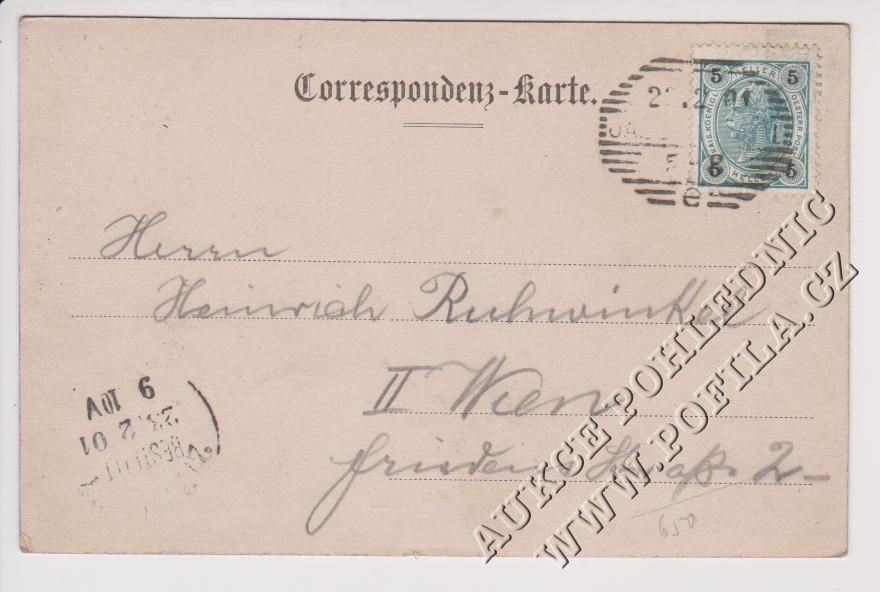 Correspondenz-Karte.
5 HELLER 5
KAIS. KOENIGL. OESTERR. POST
5 HELLER 5
2 .2 01
Herrn
Heinrich Ruhwinkel
II Wien
Friedensstraße 2
9 10V
23. 2 01
BESTELLT
650
AUKCE POHLEDNIC
WWW.POFILA.CZ